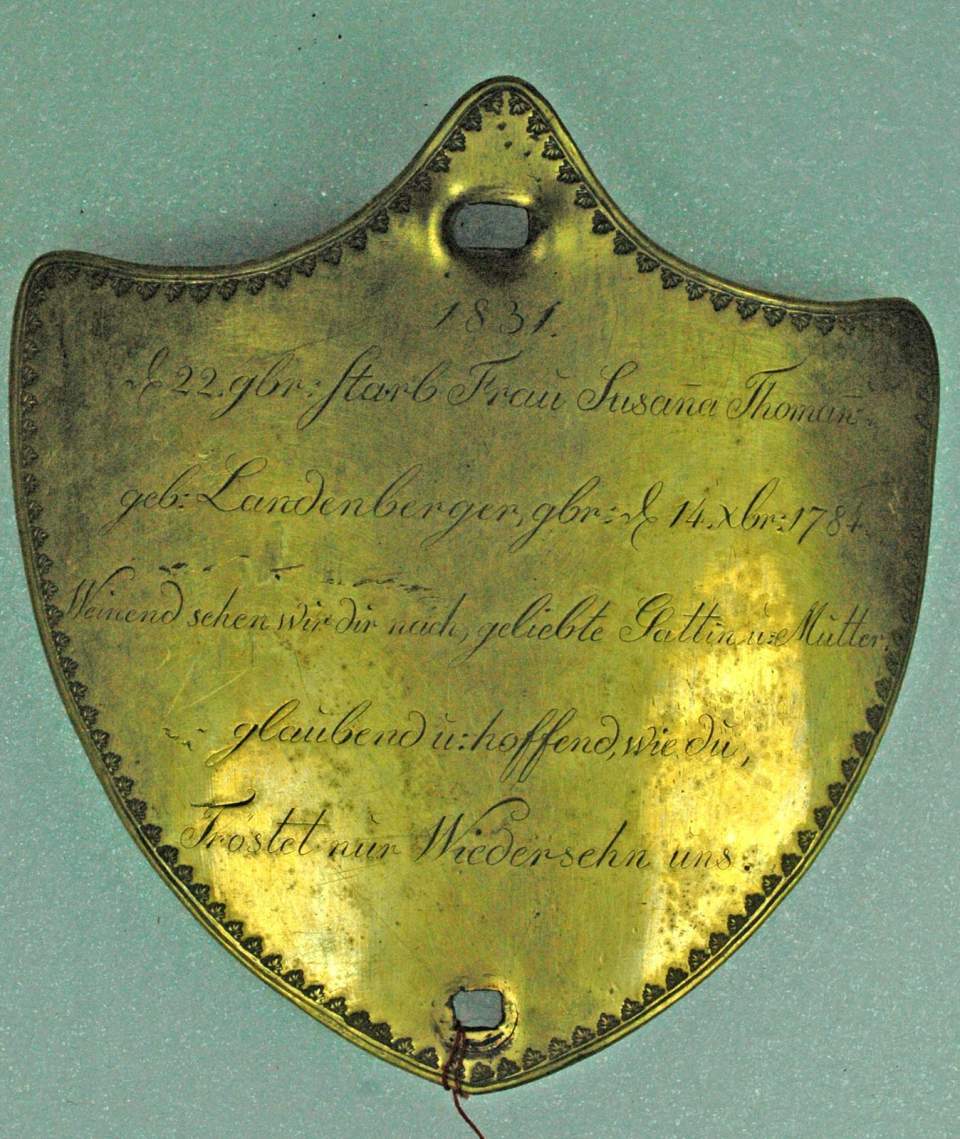 1831.
d 22. 9br: starb Frau Susan̄a Thoman̄.
geb: Landenberger, gbr: d 14. xbr: 1784.
Weinend sehen wir dir nach, geliebte Gattin ŭ: Mŭtter,
glaŭbend ŭ: hoffend, wie dŭ,
Tröstet nŭr Wiedersehn ŭns.